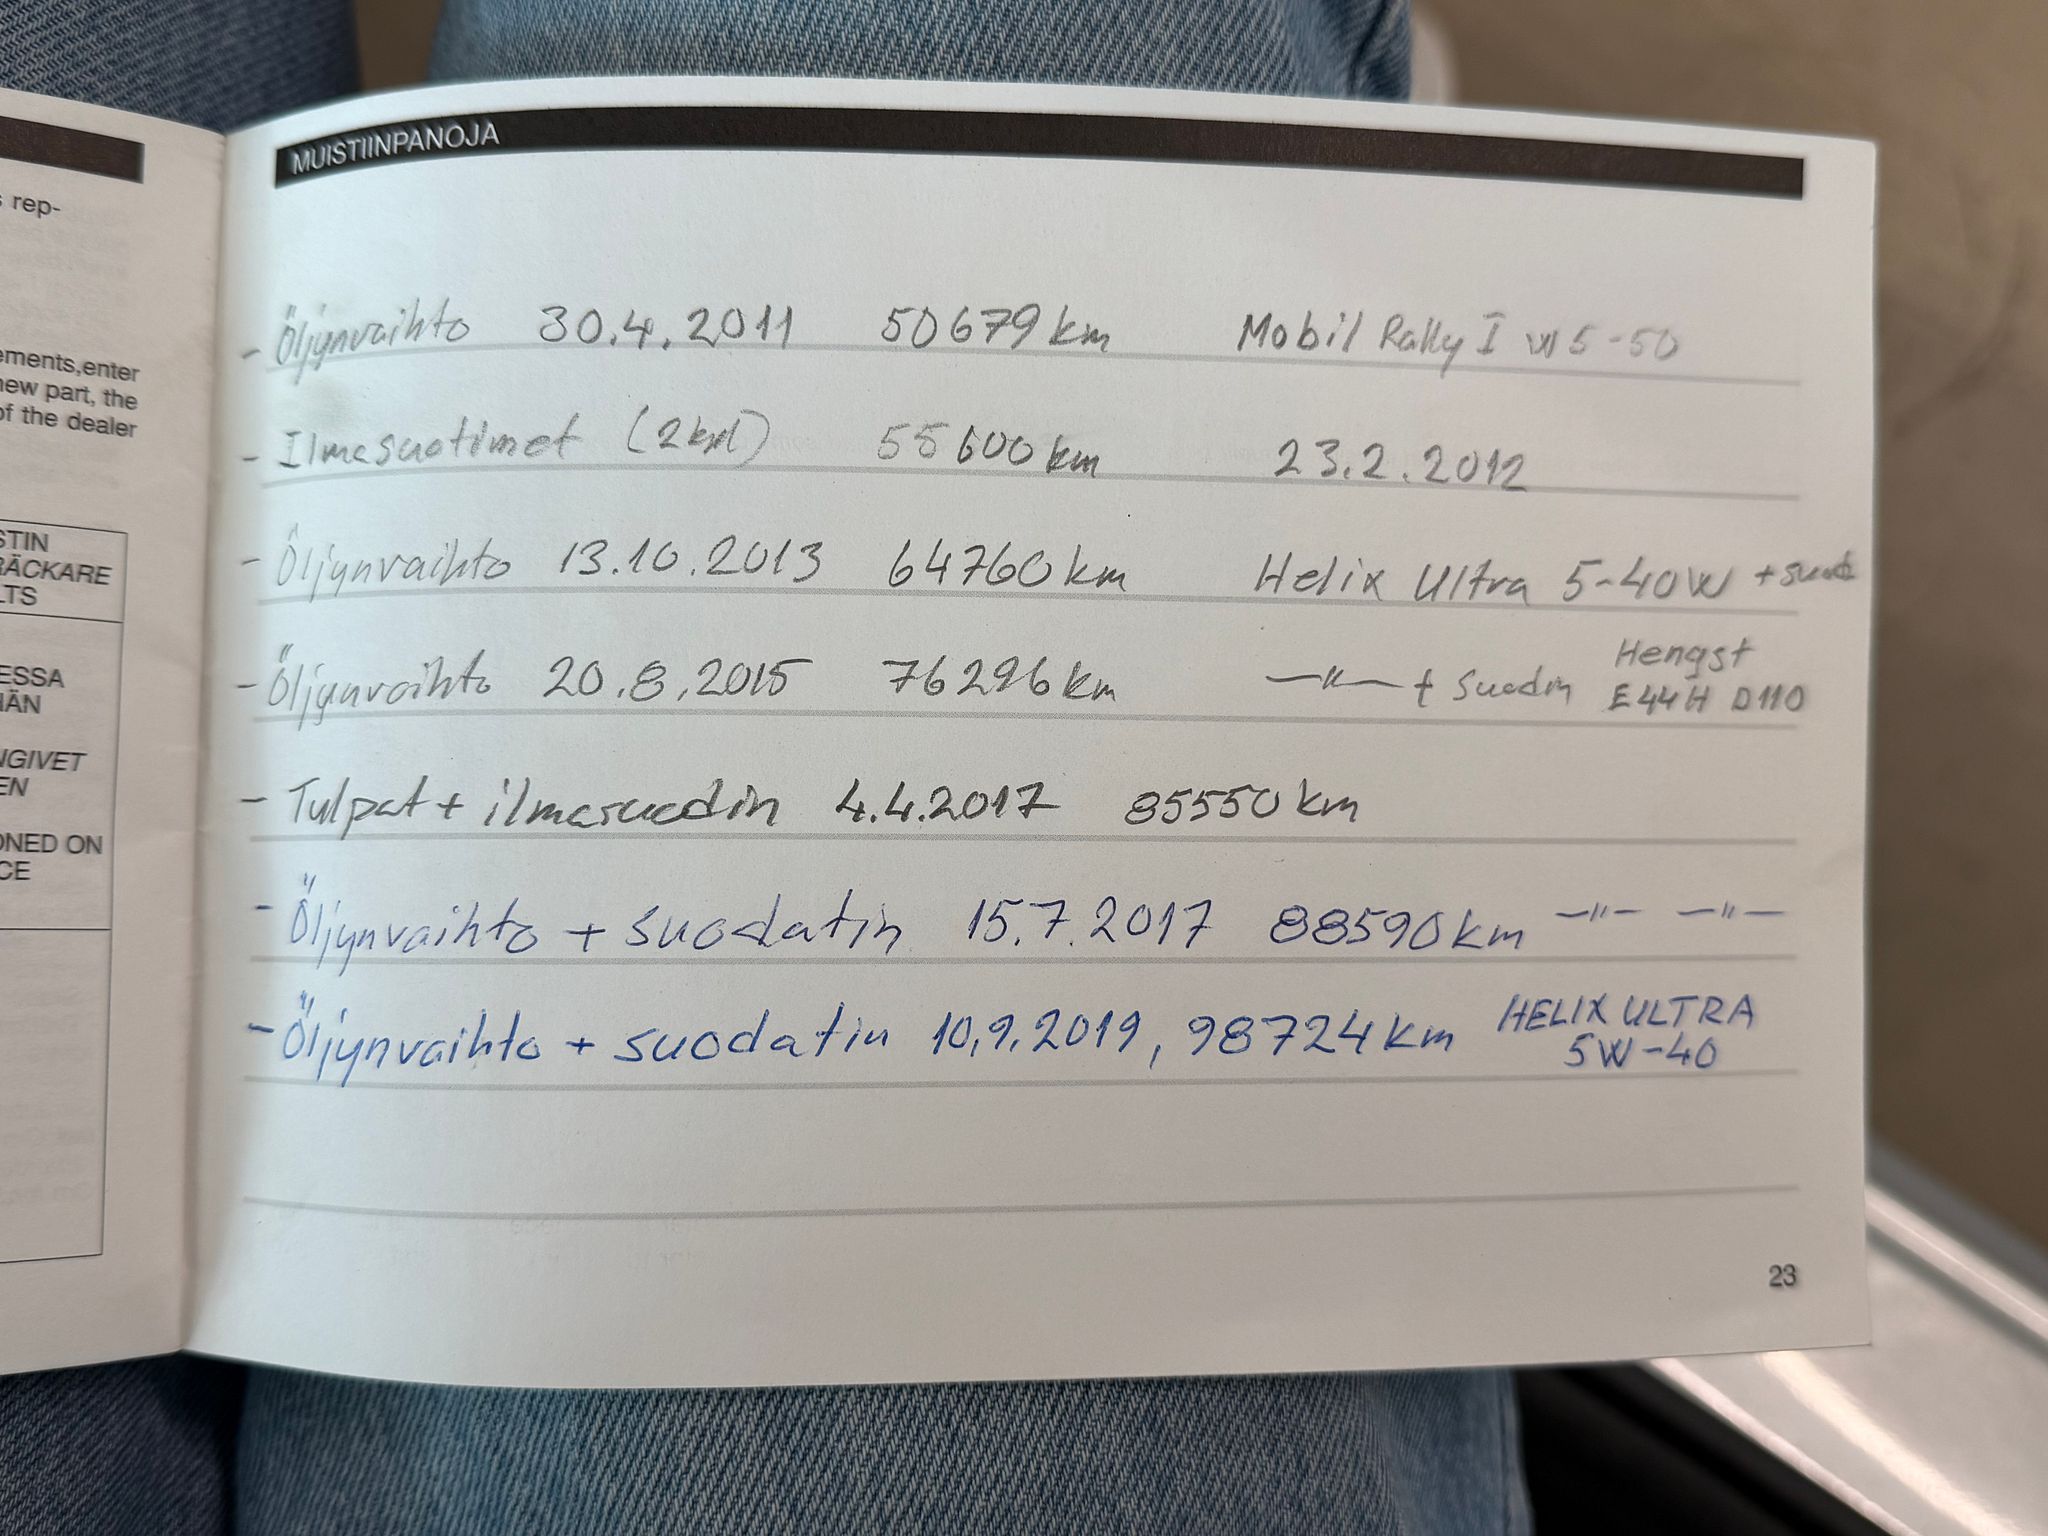 s rep-
ements,enter
new part, the
of the dealer
STIN
RÄCKARE
LTS
ESSA
HÄN
NGIVET
EN
ONED ON
CE
MUISTIINPANOJA
- Öljynvaihto 30.4.2011 50679 km Mobil Rally I W5-50
- Ilmasuotimet (2kpl) 55600 km 23.2.2012
- Öljynvaihto 13.10.2013 64760 km Helix Ultra 5-40W +
- Öljynvaihto 20.8.2015 76296 km —"— + suodin Hengst
E44H D110
- Tulpat + ilmasuodin 4.4.2017 85550 km
- Öljynvaihto + suodatin 15.7.2017 88590 km —"— —"—
- Öljynvaihto + suodatin 10.9.2019, 98724 km HELIX ULTRA
5W-40
23